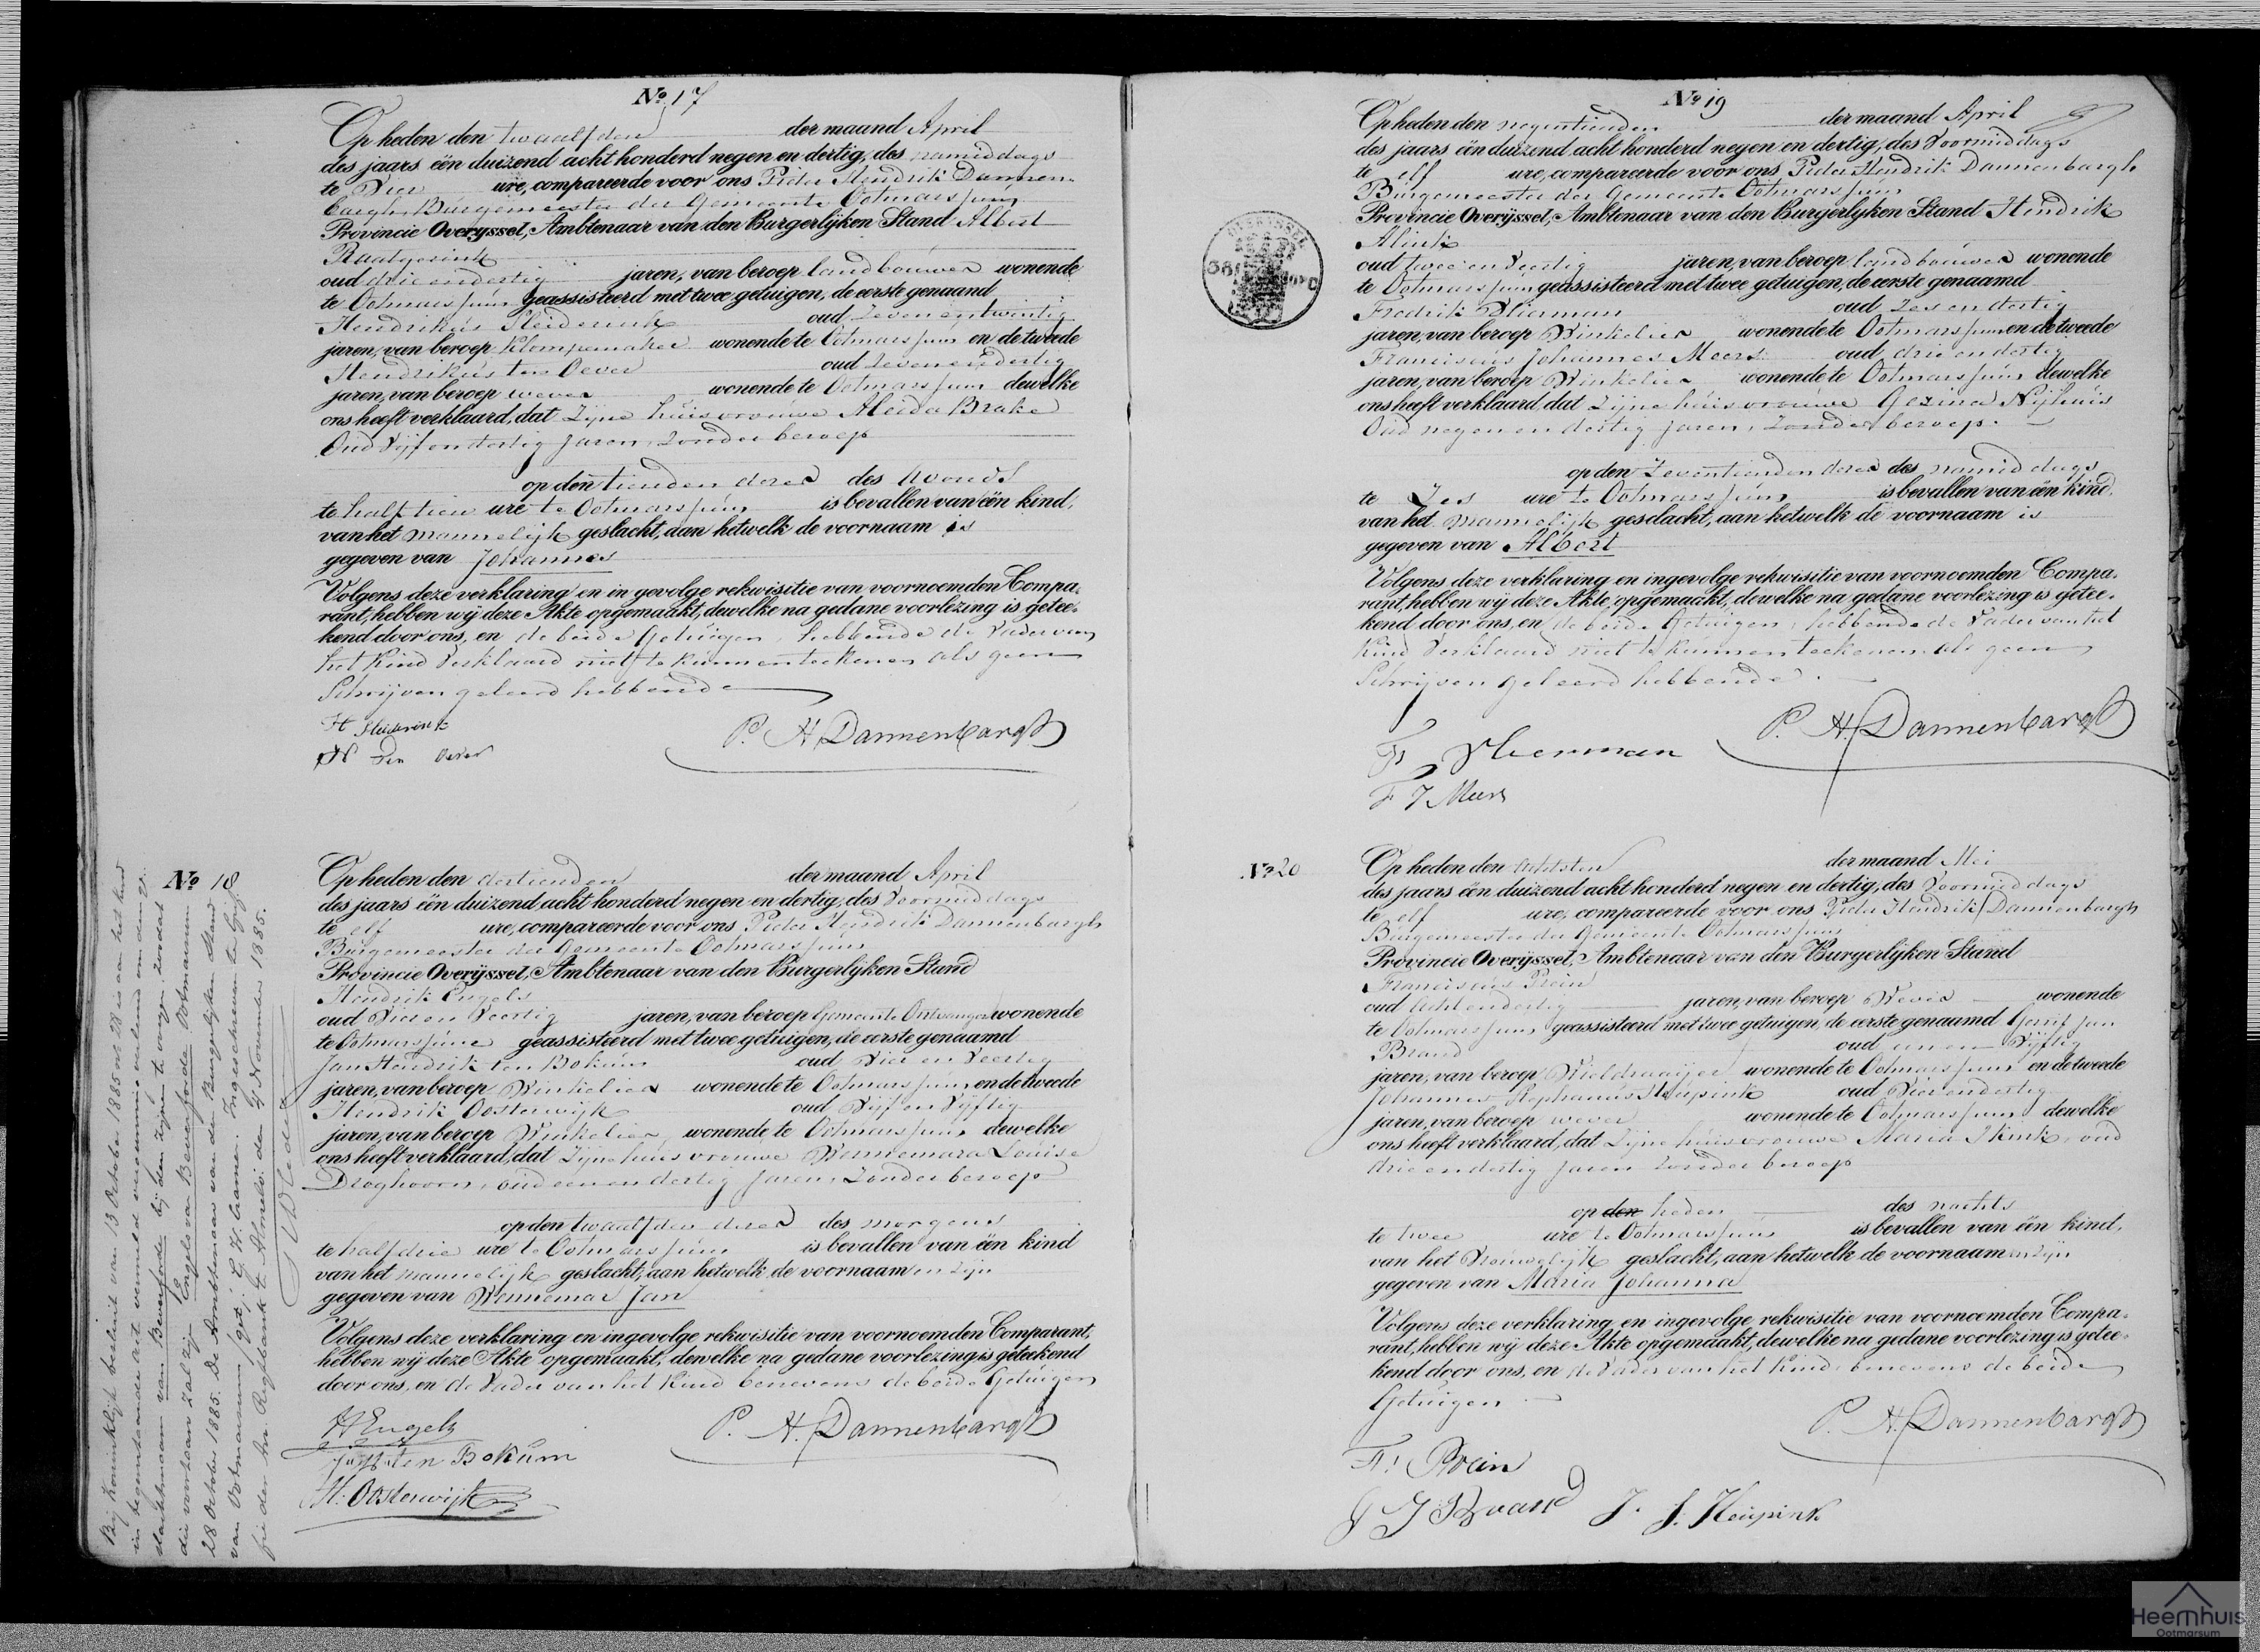 Nº 17
Op heden den twaalfden der maand April
des jaars één duizend acht honderd negen en dertig, des namiddags
te Vier ure, compareerde voor ons Pieter Hendrik Dannen-
bargh Burgemeester der Gemeente Ootmarssum
Provincie Overijssel, Ambtenaar van den Burgerlijken Stand Albert
Raatgerink
oud drie en dertig jaren, van beroep landbouwer wonende
te Ootmarssum geassisteerd met twee getuigen, de eerste genaamd
Hendrikus Sleiderink oud zeven en twintig
jaren, van beroep Klompemaker wonende te Ootmarssum en de tweede
Hendrikus ten Oever oud zeven en dertig
jaren, van beroep wever wonende te Ootmarssum dewelke
ons heeft verklaard, dat Zijne huisvrouwe Aleida Brake
Oud Vijf en dertig Jaren, Zonder beroep
op den tienden dezer des Avonds
te half tien ure te Ootmarssum is bevallen van één kind,
van het mannelijk geslacht, aan hetwelk de voornaam is
gegeven van Johannes
Volgens deze verklaring en in gevolge rekwisitie van voornoemden Compa-
rant, hebben wij deze Akte opgemaakt, dewelke na gedane voorlezing is getee-
kend door ons, en de beide Getuigen, hebbende de Vader van
het Kind Verklaard niet te kunnen teekenen als geen
Schrijven geleerd hebbende
H Sleiderink
P. H. Dannenbargh
H ten Oever
Nº 18
Op heden den dertienden der maand April
des jaars één duizend acht honderd negen en dertig, des Voormiddags
te elf ure, compareerde voor ons Pieter Hendrik Dannenbargh
Burgemeester der Gemeente Ootmarssum
Provincie Overijssel, Ambtenaar van den Burgerlijken Stand
Hendrik Engels
oud Vier en Veertig jaren, van beroep Gemeente Ontvanger wonende
te Ootmarssum geassisteerd met twee getuigen, de eerste genaamd
Jan Hendrik ten Bokum oud Vier en Veertig
jaren, van beroep Winkelier wonende te Ootmarssum en de tweede
Hendrik Oosterwijk oud Vijf en Vijftig
jaren, van beroep Winkelier wonende te Ootmarssum dewelke
ons heeft verklaard, dat Zijne huisvrouwe Wennemara Louise
Droghoorn, oud een en dertig Jaren, Zonder beroep
op den twaalfden dezer des morgens
te half drie ure te Ootmarssum is bevallen van één kind
van het mannelijk geslacht, aan hetwelk de voornaamen zijn
gegeven van Wennemar Jan
Volgens deze verklaring en ingevolge rekwisitie van voornoemden Comparant,
hebben wij deze Akte opgemaakt, dewelke na gedane voorlezing is geteekend
door ons, en de Vader van het Kind benevens de beide Getuigen
H Engels
P. H. Dannenbargh
J H ten Bokum
H. Oosterwijk
Bij Koninklijk besluit van 13 October 1885 nº 28 is aan het kind
in tegenstaande acte vermeld vergunning verleend om den ge-
slachtsnaam van Beverforde bij den zijnen te voegen, zoodat
die voortaan zal zijn Engels van Beverforde. Ootmarsum
28 October 1885. De Ambtenaar van den Burgerlijken Stand
van Ootmarsum (get.) G. H. Cramer. Ingeschreven ter Grif-
fie der Arr. Regtbank te Almelo den 4 November 1885.
Nº 19
Op heden den negentienden der maand April
des jaars één duizend acht honderd negen en dertig, des Voormiddags
te elf ure, compareerde voor ons Pieter Hendrik Dannenbargh
Burgemeester der Gemeente Ootmarssum
Provincie Overijssel, Ambtenaar van den Burgerlijken Stand Hendrik
Alink
oud twee en Veertig jaren, van beroep landbouwer wonende
te Ootmarssum geassisteerd met twee getuigen, de eerste genaamd
Fredrik Vlierman oud Zes en dertig
jaren, van beroep Winkelier wonende te Ootmarssum en de tweede
Franciscus Johannes Meers oud drie en dertig
jaren, van beroep Winkelier wonende te Ootmarssum dewelke
ons heeft verklaard, dat Zijne huisvrouwe Gezina Nijhuis
Oud negen en dertig jaren, Zonder beroep.
op den Zeventienden dezer des namiddags
te Zes ure te Ootmarssum is bevallen van één kind,
van het mannelijk geslacht, aan hetwelk de voornaam is
gegeven van Albert
Volgens deze verklaring en ingevolge rekwisitie van voornoemden Compa-
rant, hebben wij deze Akte opgemaakt, dewelke na gedane voorlezing is getee-
kend door ons, en de beide Getuigen, hebbende de Vader van het
Kind Verklaard niet te kunnen teekenen als geen
Schrijven geleerd hebbende.
P. H. Dannenbargh
F Vlierman
F J Meers
Nº 20
Op heden den achtsten der maand Mei
des jaars één duizend acht honderd negen en dertig, des Voormiddags
te elf ure, compareerde voor ons Pieter Hendrik Dannenbargh
Burgemeester der Gemeente Ootmarssum
Provincie Overijssel, Ambtenaar van den Burgerlijken Stand
Franciscus Prein
oud Acht en dertig jaren, van beroep Wever wonende
te Ootmarssum geassisteerd met twee getuigen, de eerste genaamd Gerrit Jan
Brand oud een en Vijftig
jaren, van beroep Wieldraaijer wonende te Ootmarssum en de tweede
Johannes Stephanus Heupink oud Vier en dertig
jaren, van beroep wever wonende te Ootmarssum dewelke
ons heeft verklaard, dat Zijne huisvrouwe Maria Ikink, oud
drie en dertig Jaren Zonder beroep
op den heden des nachts
te twee ure te Ootmarssum is bevallen van één kind,
van het Vrouwelijk geslacht, aan hetwelk de voornaamen zijn
gegeven van Maria Johanna
Volgens deze verklaring en ingevolge rekwisitie van voornoemden Compa-
rant, hebben wij deze Akte opgemaakt, dewelke na gedane voorlezing is getee-
kend door ons, en de Vader van het Kind benevens de beide
Getuigen
P. H. Dannenbargh
F. Prein
G J Brand J. S. Heupink
Heemhuis
Ootmarsum